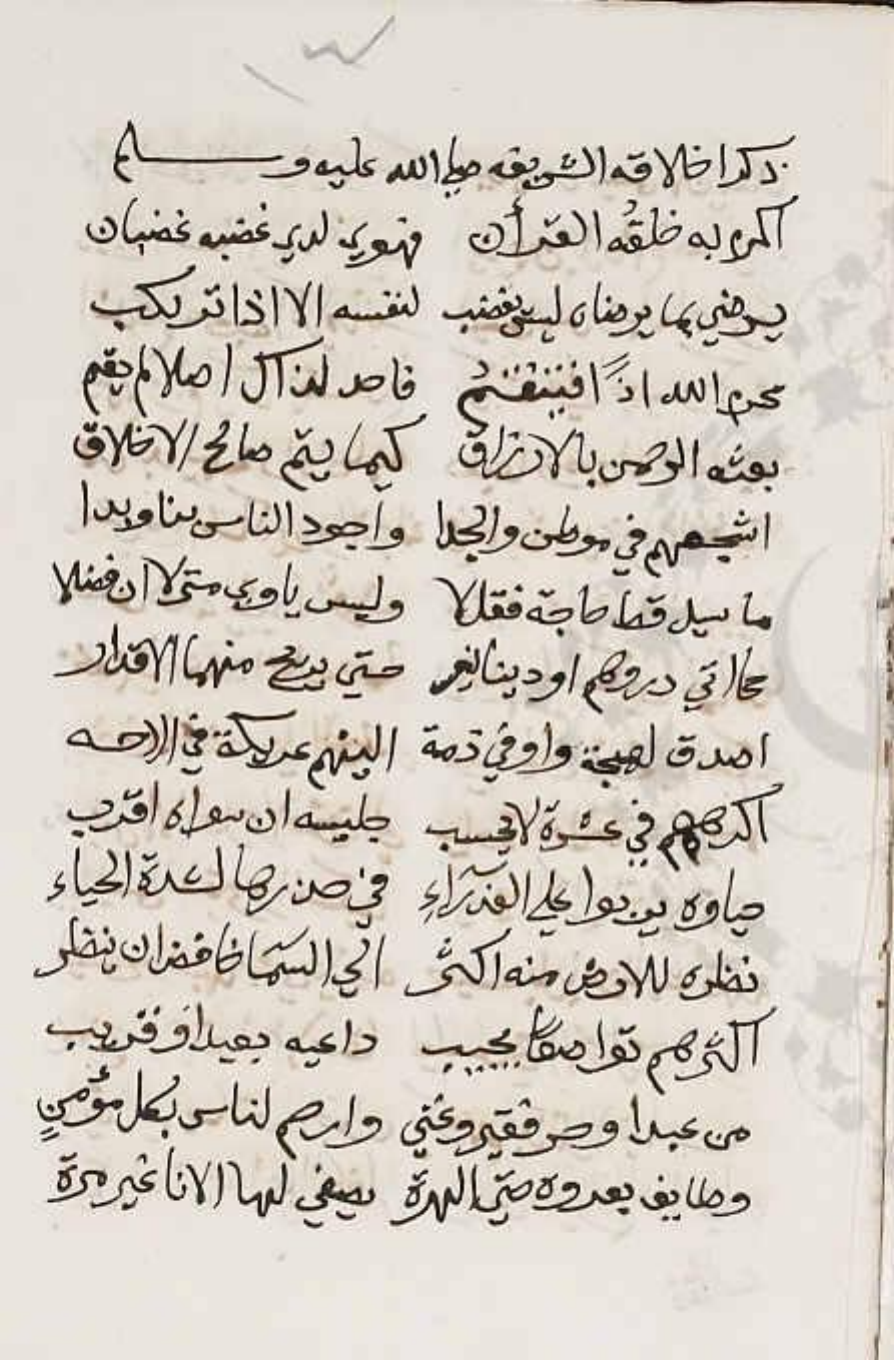 ذكر اخلاقه الشريفه صلي الله عليه وسلم
اكرم به خلقُه القرأن فهوي لدي غضبه غضبان
يرضي بما يرضاه ليس يغضب لنفسه الا اذا ترتكب
محرم الله اذًا فينتقم فاحد لذاك اصلا لم يقم
بعثه الرحمن بالارزاق كيما يتم صالح الاخلاق
اشجعهم في موطن والجدا واجود الناس بنا ويدا
ما سيل قط حاجة فقل لا وليس ياوي متزلا ان فضلا
مما اتي درهم او دينار حتي يريح منهما الاقدار
اصدق لهجة واوفي ذمة الينهم عريكة في الامه
اكرمهم في عشرة لا يحسب جليسه ان سواه اقرب
حياوه يربوا علي العذراءِ في خدرها لشدة الحياء
نظره للارض منه اكثر الي السما خافض ان ينظر
اكثرهم تواضعًا يجيب داعيه بعيد او قريب
من عبد او حر فقير وغني وارحم لناس بكل مؤمنٍ
وطايف يعروه حتي الهرة يصغي لها الانا غير مرة